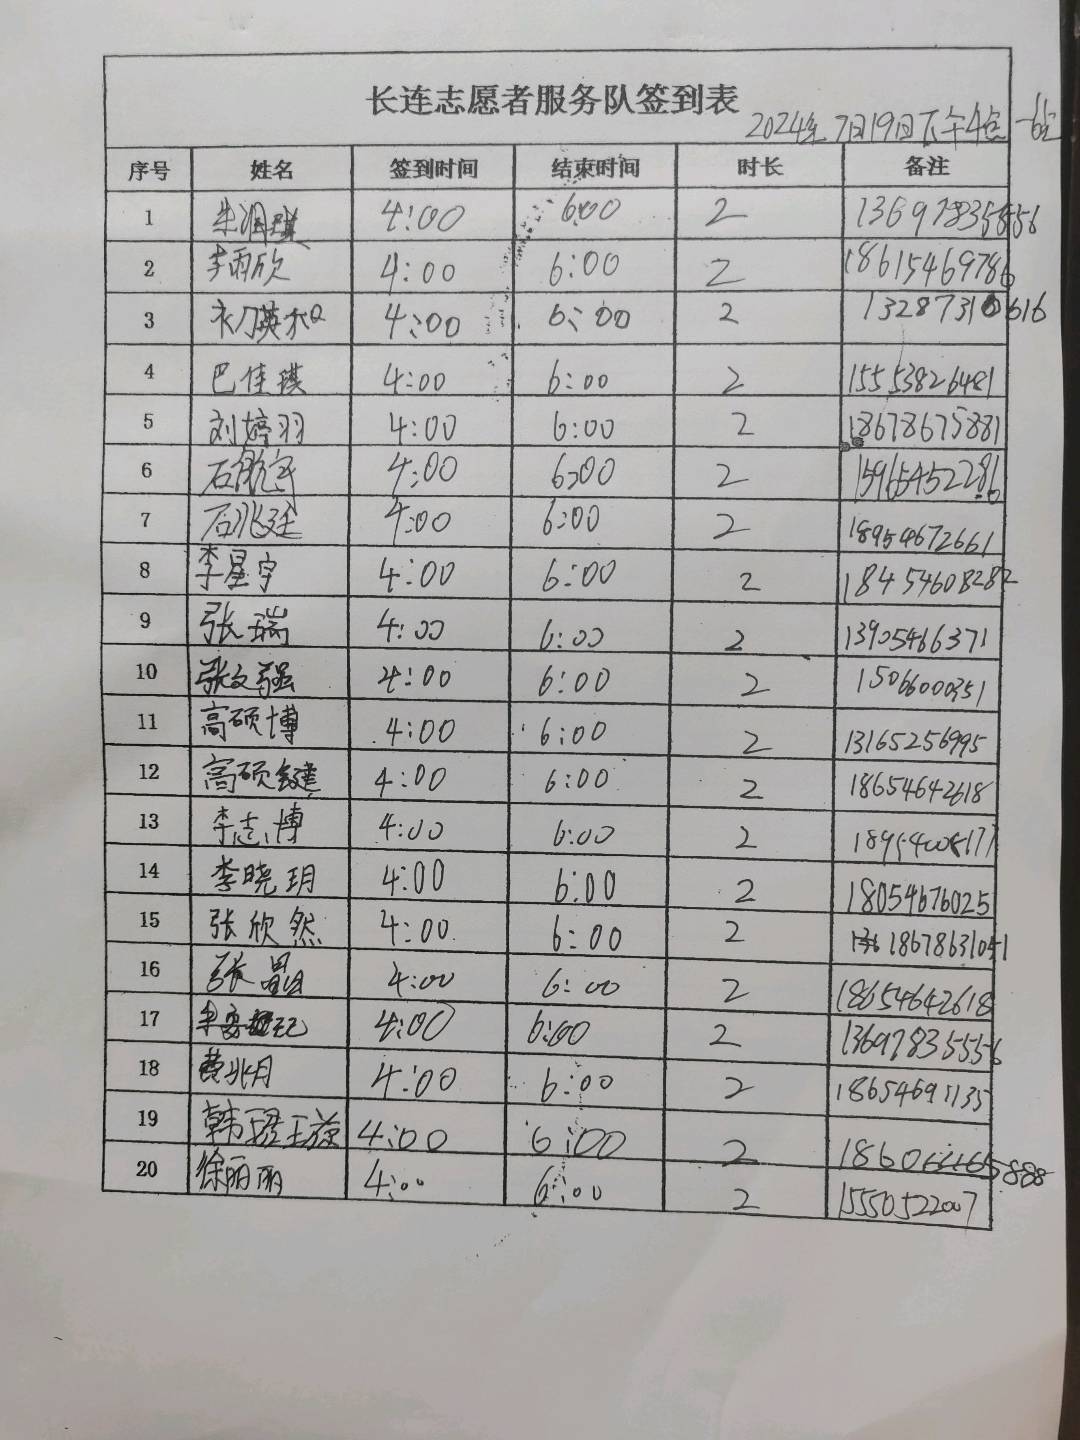 长连志愿者服务队签到表
2024年7月19日下午4点-6点
序号 姓名 签到时间 结束时间 时长 备注
1 朱润琪 4:00 6:00 2
2 李雨欣 4:00 6:00 2 18615469786
3 4:00 6:00 2 13287310616
4 巴佳琪 4:00 6:00 2 15553826481
5 刘婷羽 4:00 6:00 2 18678675881
6 石航宇 4:00 6:00 2 15965452286
7 石兆廷 4:00 6:00 2 18954672661
8 李星宇 4:00 6:00 2 18454608282
9 张瑞 4:00 6:00 2 13905466371
10 张文强 4:00 6:00 2 15066000351
11 高硕博 4:00 6:00 2 13165256995
12 高硕键 4:00 6:00 2 18654642618
13 李志博 4:00 6:00 2
14 李晓玥 4:00 6:00 2 18054676025
15 张欣然 4:00 6:00 2 18678631051
16 张晶 4:00 6:00 2 18654642618
17 4:00 6:00 2 13697835556
18 费兆月 4:00 6:00 2 18654691135
19 4:00 6:00 2
20 徐丽丽 4:00 6:00 2 15550522007